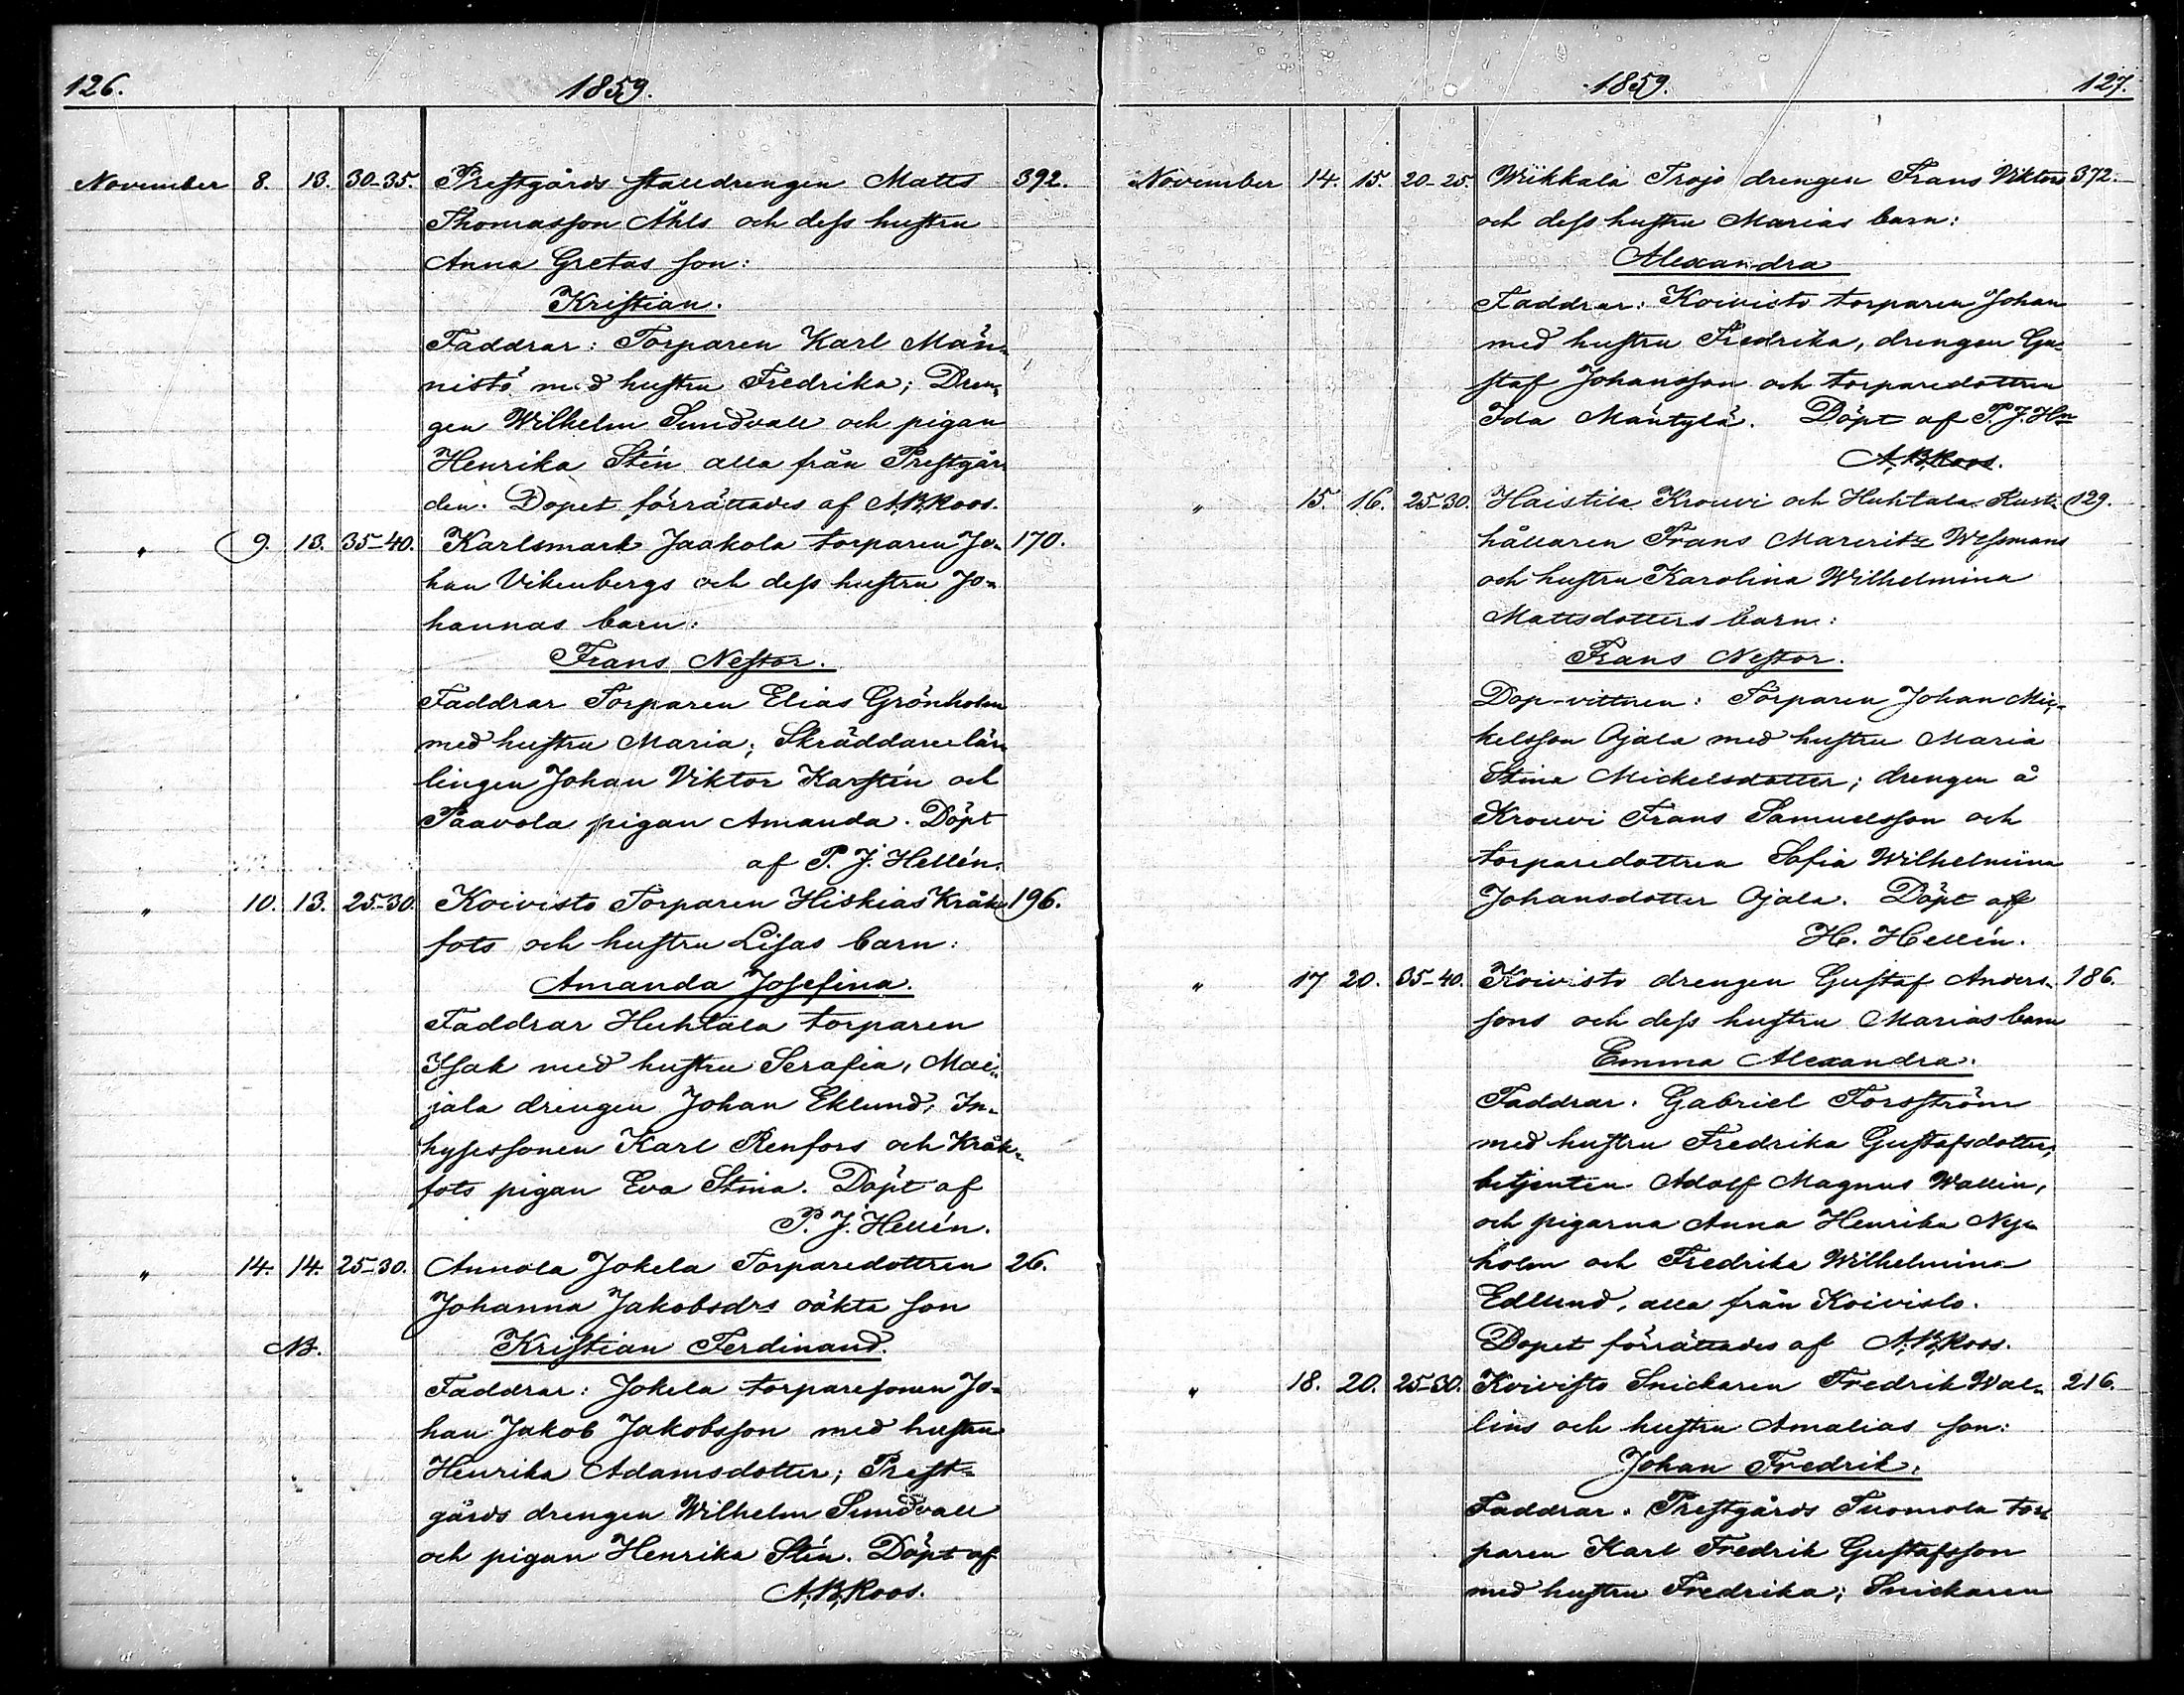 126.
1859.
November 8. 13. 30-35. Prestgårds stalldrengen Matts 392.
Thomasson Åhls och dess hustru
Anna Gretas son:
Kristian.
Faddrar: Torparen Karl Män-
nistö med hustru Fredrika; Dren-
gen Wilhelm Sundvall och pigan
Henrika Stén alla från Prestgår-
den. Dopet förrättades af A.B.Roos.
" 9. 13. 35-40. Karlsmark Jaakola torparen Jo- 170.
han Vikenbergs och dess hustru Jo-
hannas barn:
Frans Nestor.
Faddrar Torparen Elias Grönholm
med hustru Maria; Skräddarelär-
lingen Johan Viktor Karstén och
Paavola pigan Amanda. Döpt
af P. J. Hellén.
" 10. 13. 25-30. Koivisto Torparen Hiskias Kråk- 196.
fots och hustru Lisas barn:
Amanda Josefina.
Faddrar Huhtala torparen
Isak med hustru Serafia, Mai-
jala drengen Johan Eklund, In-
hysessonen Karl Renfors och Kråk-
fots pigan Eva Stina. Döpt af
P. J. Hellén.
" 14. 14. 25-30. Annola Jokela Torparedottren 26.
Johanna Jakobsdrs oäkta son
NB. Kristian Ferdinand.
Faddrar: Jokela torparesonen Jo-
han Jakob Jakobsson med hustru
Henrika Adamsdotter; Prest-
gårds drengen Wilhelm Sundvall
och pigan Henrika Stén. Döpt af
A.B.Roos.
1859.
127.
November 14. 15. 20-25. Wiikkala Trojo drengen Frans Viktors 372.
och dess hustru Marias barn:
Alexandra
Faddrar: Koivisto torparen Johan
med hustru Fredrika, drengen Gu-
staf Johansson och torparedottren
Ida Mäntylä. Döpt af P. J. Hn
A.B.Roos.
" 15. 16. 25-30. Haistila Krouvi och Huhtala Rust- 129.
hållaren Frans Mauritz Wessmans
och hustru Karolina Wilhelmina
Mattsdotters barn:
Frans Nestor.
Dop-vittnen: Torparen Johan Mic-
kelsson Ojala med hustru Maria
Stina Mickelsdotter; drengen å
Krouvi Frans Samuelsson och
torparedottren Sofia Wilhelmina
Johansdotter Ojala. Döpt af
H. Hellén.
" 17 20. 35-40. Koivisto drengen Gustaf Anders- 186.
sons och dess hustru Marias barn
Emma Alexandra.
Faddrar. Gabriel Forsström
med hustru Fredrika Gustafsdotter;
betjenten Adolf Magnus Wallin,
och pigarna Anna Henrika Ny-
holm och Fredrika Wilhelmina
Edlund, alla från Koivisto.
Dopet förrättades af A.B.Roos.
" 18. 20. 25-30. Koivisto Snickaren Fredrik Wal- 216.
lins och hustru Amalias son:
Johan Fredrik.
Faddrar. Prestgårds Tuomola tor-
paren Karl Fredrik Gustafsson
med hustru Fredrika; Snickaren